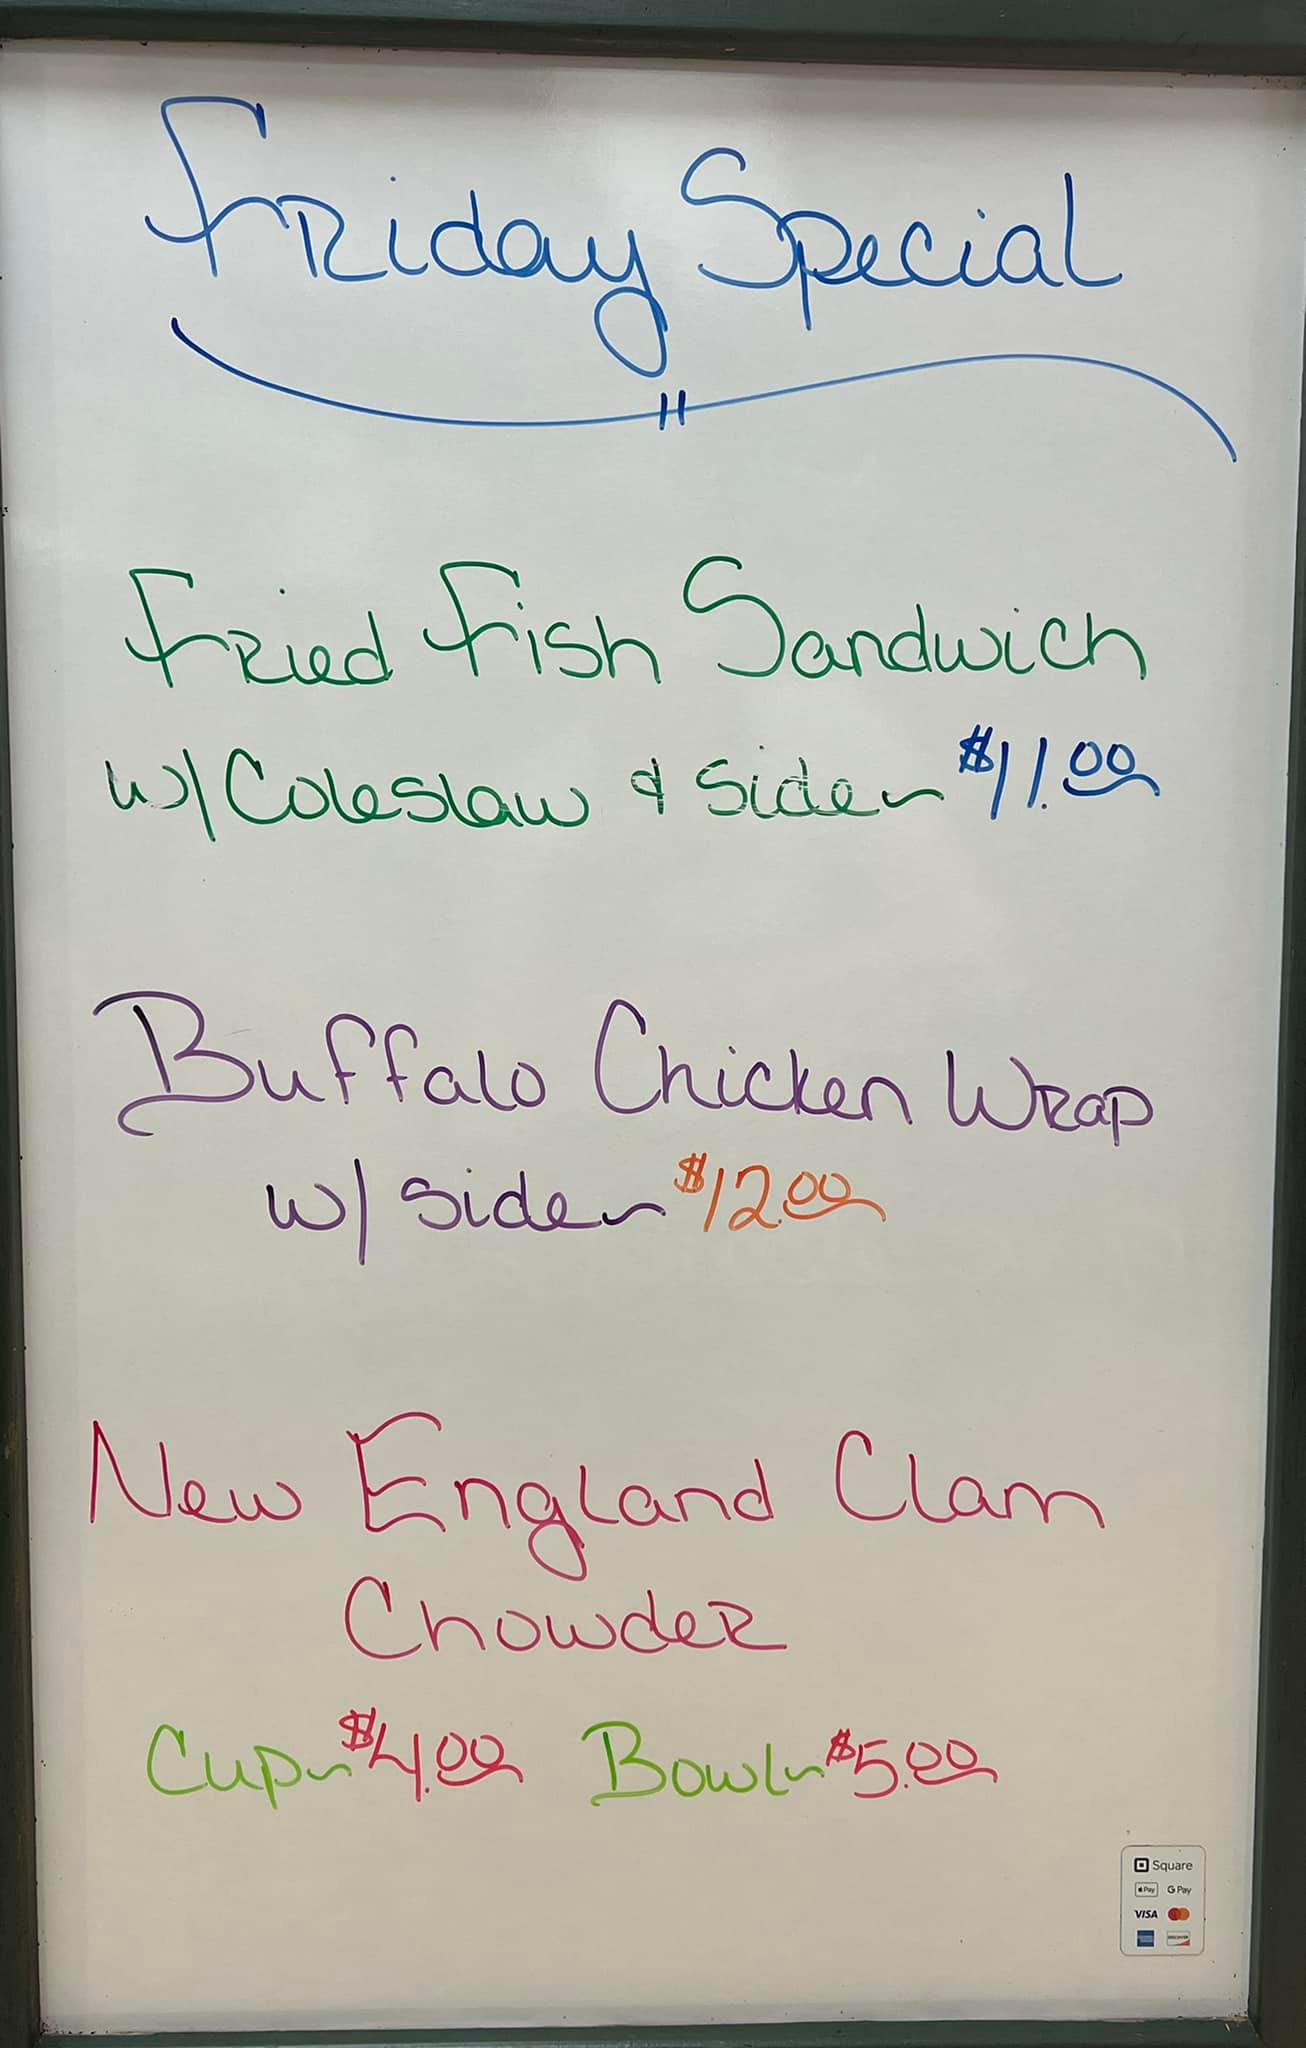 Friday Special
Fried Fish Sandwich
w/ Coleslaw & side ~ $11.00
Buffalo Chicken Wrap
w/ side ~ $12.00
New England Clam
Chowder
Cup ~ $4.00 Bowl ~ $5.00
Square
Pay G Pay
VISA
DISCOVER